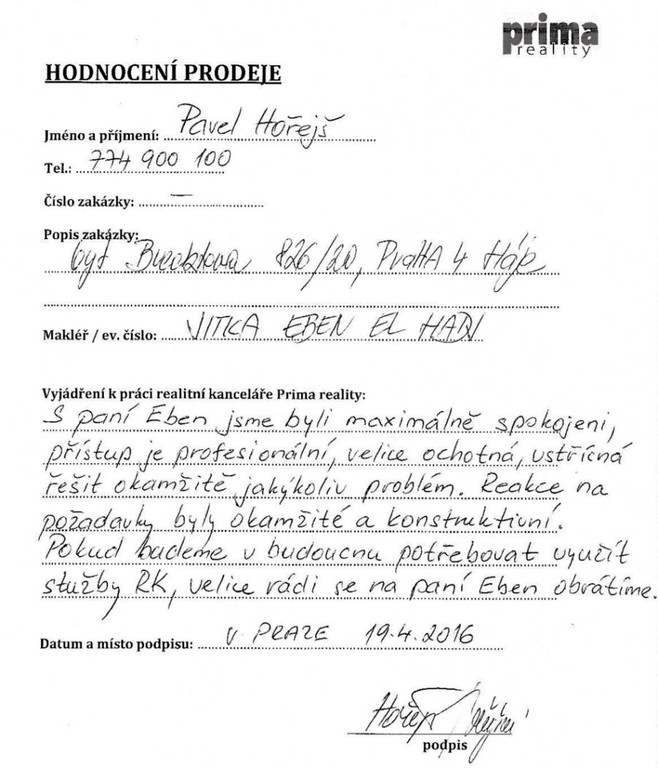 prima
reality
HODNOCENÍ PRODEJE
Jméno a příjmení: Pavel Hořejš
Tel.: 774 900 100
Číslo zakázky: —
Popis zakázky:
byt 826/20, PRAHA 4 Háje
Makléř / ev. číslo: JITKA EBEN EL
Vyjádření k práci realitní kanceláře Prima reality:
S paní Eben jsme byli maximálně spokojeni,
přístup je profesionální, velice ochotná, vstřícná
řešit okamžitě jakýkoliv problém. Reakce na
požadavky byly okamžité a konstruktivní.
Pokud budeme v budoucnu potřebovat využít
služby RK, velice rádi se na paní Eben obrátíme.
Datum a místo podpisu: V PRAZE 19.4.2016
podpis